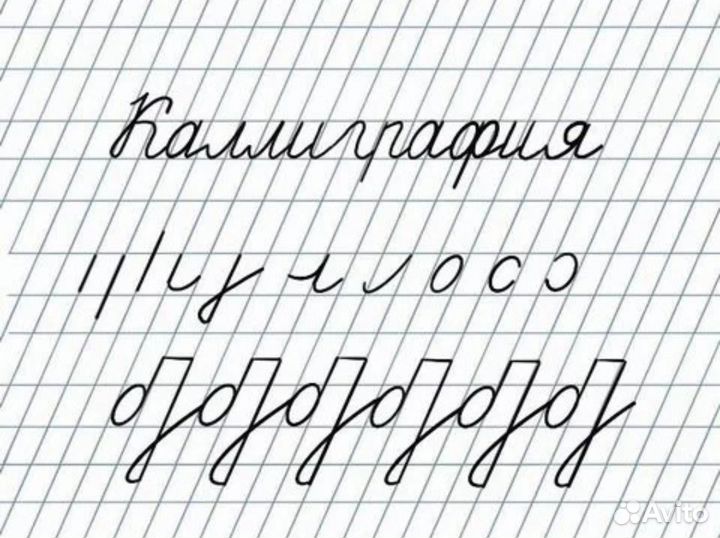 Каллиграфия
Avito